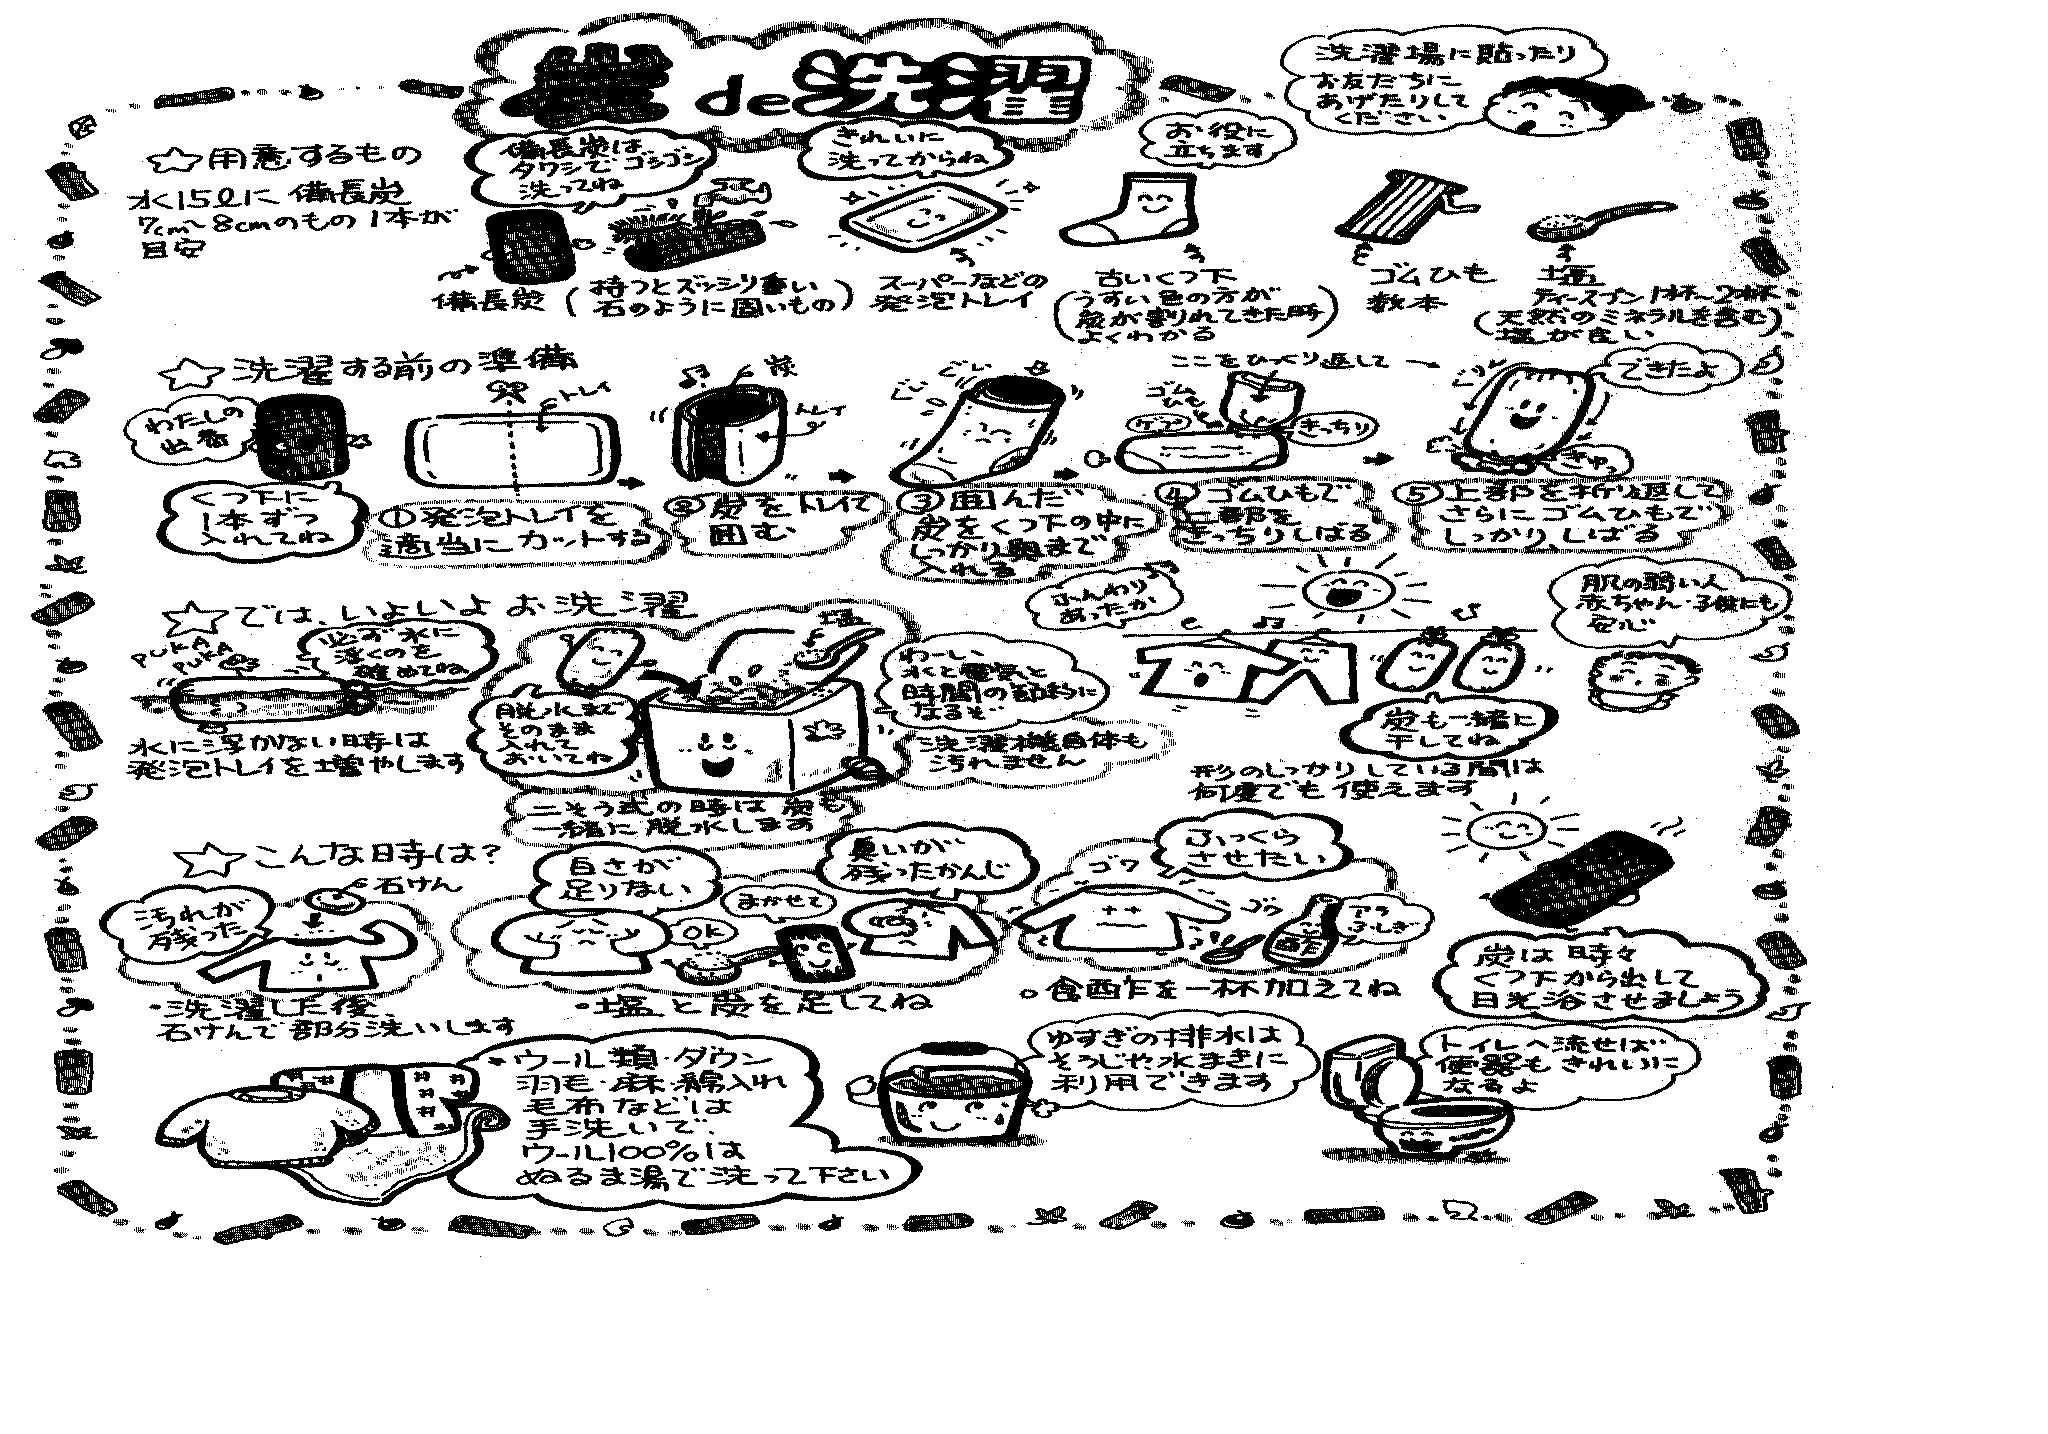 炭de洗濯
洗濯場に貼ったり
お友だちに
あげたりして
ください
☆用意するもの
水15ℓに 備長炭
7cm〜8cmのもの 1本が
目安
備長炭は
タワシでゴシゴシ
洗ってね
きれいに
洗ってからね
お役に
立ちます
備長炭
(持つとズッシリ重い
石のように固いもの)
スーパーなどの
発泡トレイ
古いくつ下
(うすい色の方が
炭が割れてきた時
よくわかる)
ゴムひも
数本
塩
ティースプーン1杯〜2杯
(天然のミネラルを含む
塩が良い)
☆洗濯する前の準備
わたしの
出番
くつ下に
1本ずつ
入れてね
トレイ
①発泡トレイを
適当にカットする
炭
トレイ
②炭をトレイで
囲む
ぐい
ぐい
③囲んだ
炭をくつ下の中に
しっかり奥まで
入れる
ここをひっくり返して
ゴム
ひも
きっちり
④ゴムひもで
上部を
きっちりしばる
できたよ
ぎゅっ
⑤上部を折り返して
さらにゴムひもで
しっかり、しばる
☆では、いよいよ お洗濯
PUKA
PUKA
必ず水に
浮くのを
確めてね
水に浮かない時は
発泡トレイを増やします
塩
脱水まで
そのまま
入れて
おいてね
二そう式の時は炭も
一緒に脱水します
わーい
水と電気と
時間の節約に
なるぞ
洗濯機自体も
汚れません
ふんわり
あったか
炭も一緒に
干してね
形のしっかりしている間は
何度でも使えます
肌の弱い人
赤ちゃん・子供にも
安心
☆こんな時は?
石けん
汚れが
残った
・洗濯した後、
石けんで部分洗いします
白さが
足りない
OK
まかせて
臭いが
残ったかんじ
・塩と炭を足してね
ゴワ
ゴワ
ふっくら
させたい
アラ
ふしぎ
○食酢を一杯加えてね
炭は時々
くつ下から出して
日光浴させましょう
・ウール類・ダウン
羽毛・麻・綿入れ
毛布などは
手洗いで、
ウール100%は
ぬるま湯で洗って下さい
ゆすぎの排水は
そうじや水まきに
利用できます
トイレへ流せば
便器もきれいに
なるよ